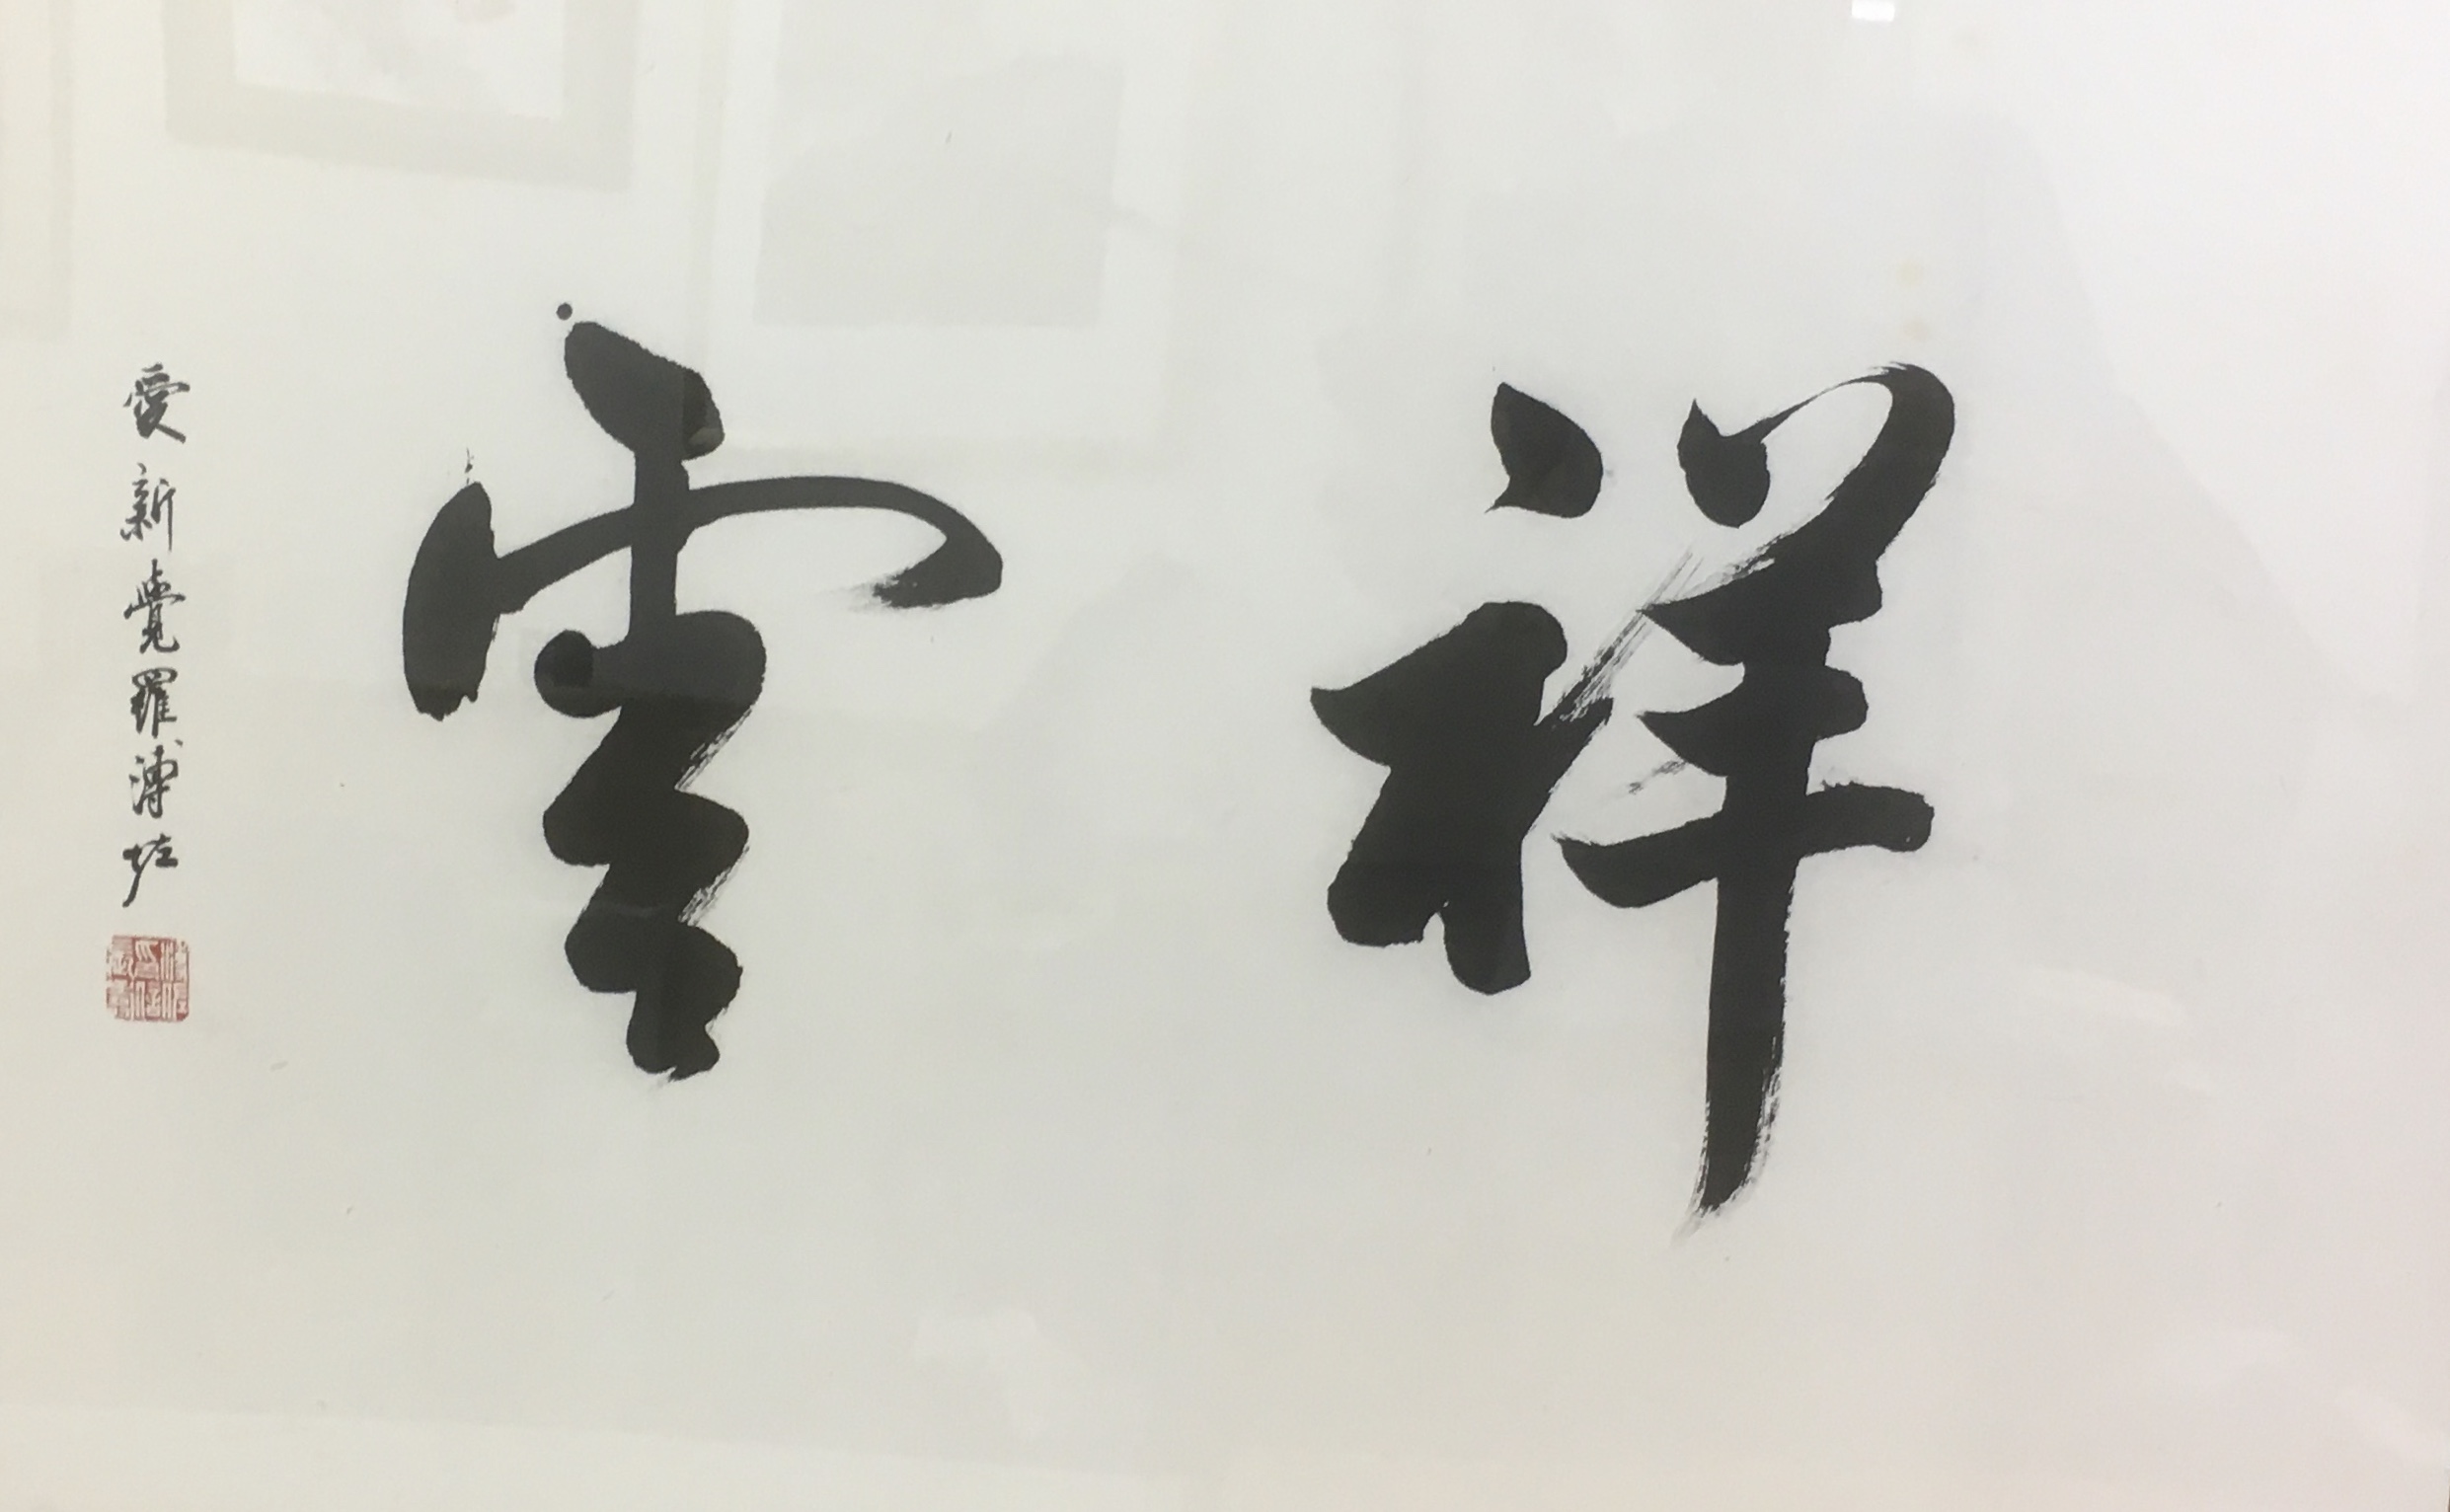 祥雲
愛新覺羅溥佐